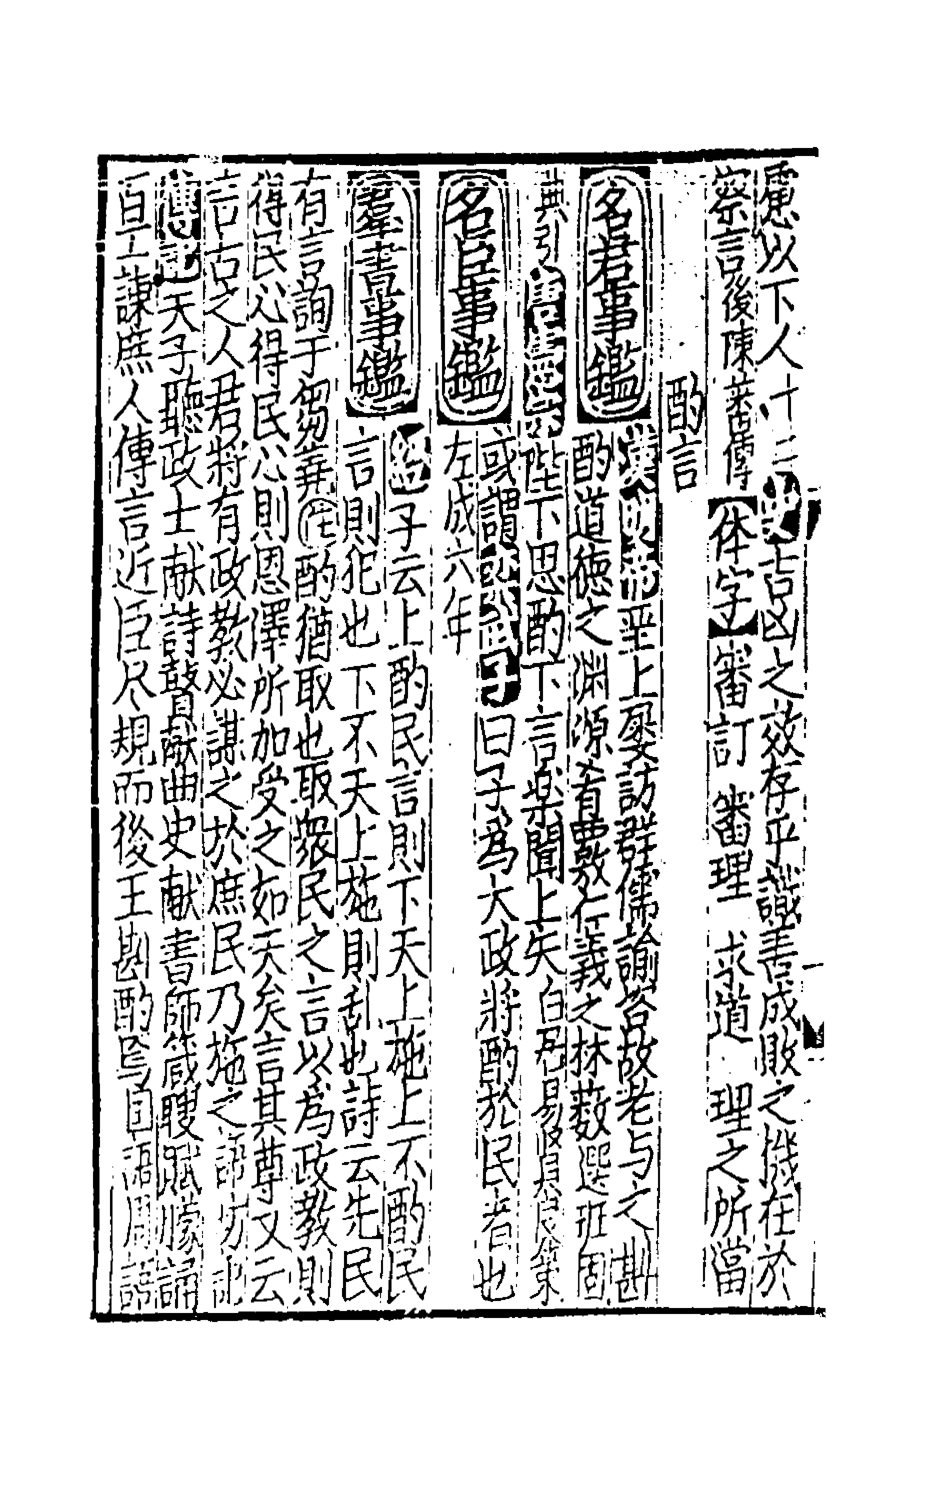 慮以下人十二 吉凶之效存乎識善成敗之機在於
察言後陳蕃傳【体字】審訂 審理 求道 理之所當
酌言
名君事鑑 漢明帝 上娿訪群儒諭咨故老与之斟
酌道徳之渊源肴覈仁義之林薮選班固
典引 陛下思酌下言楽聞上失白居易賢良策
名臣事鑑 或謂 子曰子為大政將酌於民者也
左成六年
羣書事鑑 子云上酌民言則下天上施上不酌民
言則犯也下不天上施則乱也詩云先民
有言詢于芻蕘 酌猶取也取衆民之言以為政教則
得民心得民心則恩澤所加受之如天矣言其尊又云
言古之人君將有政教必謀之於庶民乃施之語坊記
傳記天子聽政士献詩瞽献曲史献書師箴瞍賦矇誦
百工諫庶人傳言近臣尽規而後王斟酌焉囯語周語